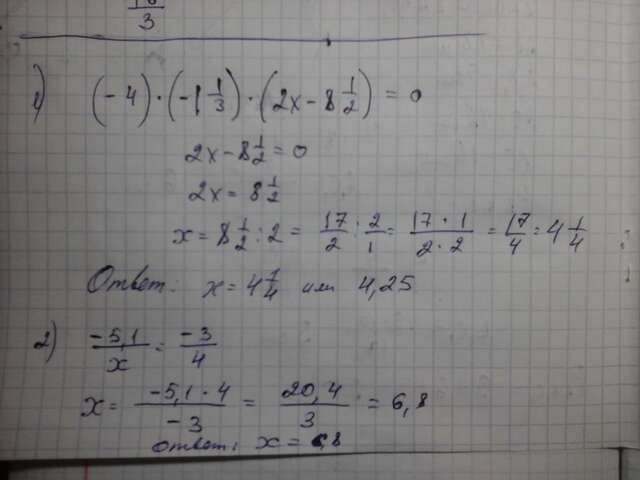 16/3
1) (-4) · (-1 1/3) · (2x - 8 1/2) = 0
2x - 8 1/2 = 0
2x = 8 1/2
x = 8 1/2 : 2 = 17/2 : 2/1 = 17 · 1/2 · 2 = 17/4 = 4 1/4
Ответ: x = 4 1/4 или 4,25
2) -5,1/x = -3/4
x = -5,1 · 4/-3 = 20,4/3 = 6,8
Ответ: x = 6,8